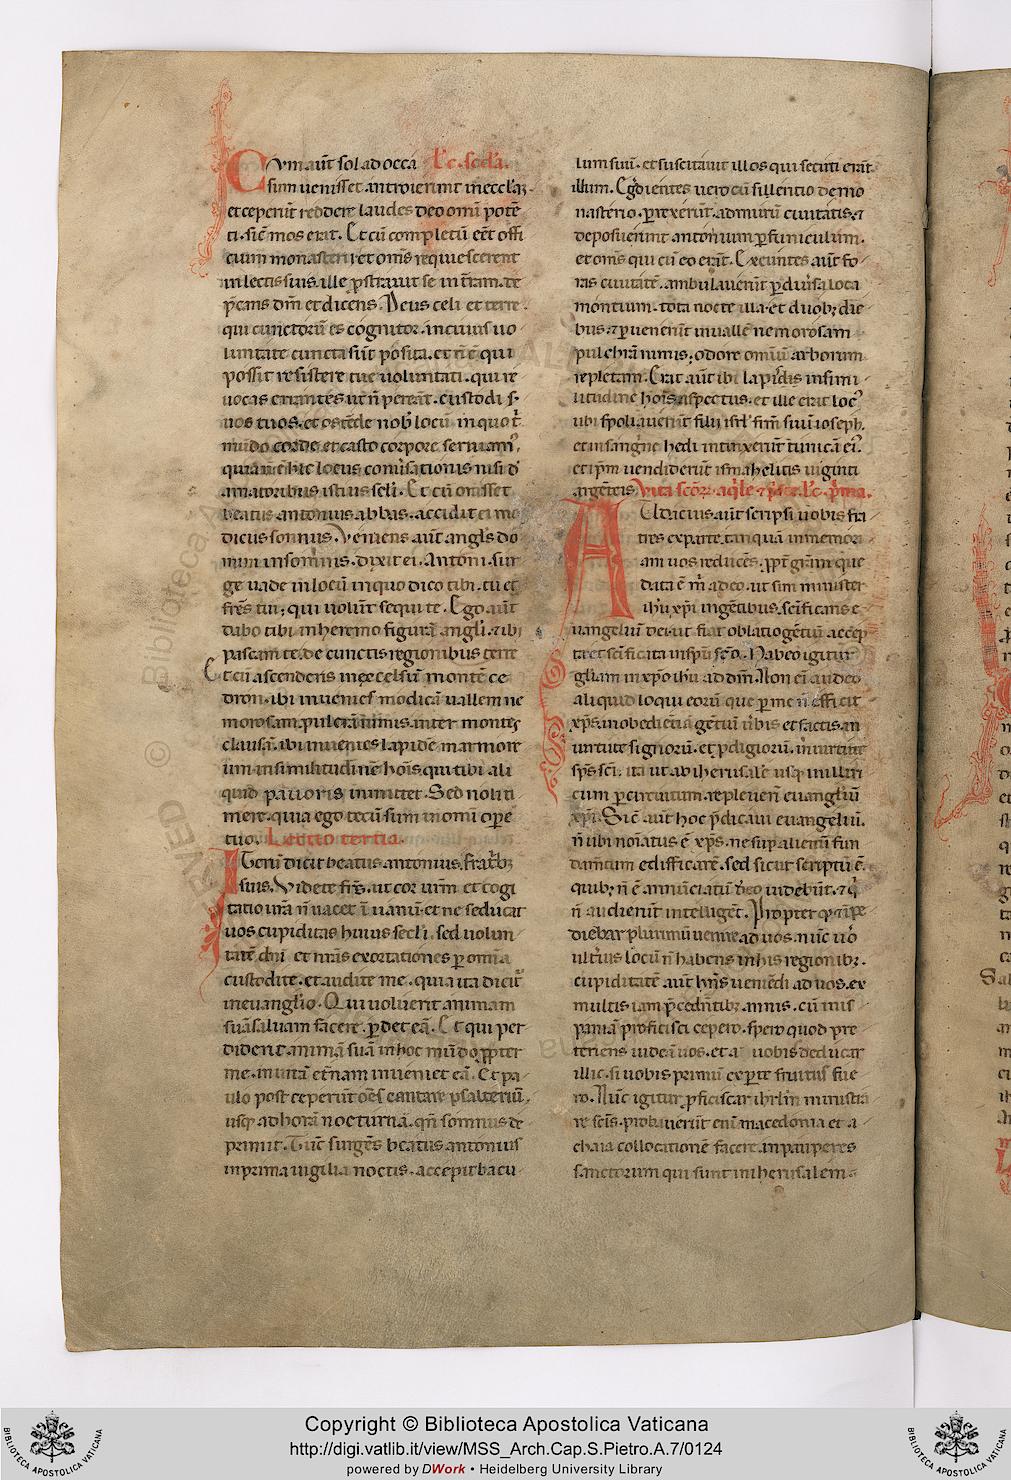 Cum aut̄ sol ad occa L̄c. sc̄da.
sum uenisset. introierunt in eccl̄aȝ.
et ceperūt reddere laudes deo om̄i potē
ti. sic̄ mos erat. Et cū completū eēt offi
cium monasterii et om̄s requiescerent
in lectis suis. ille p̄strauit se in t̄ram. de
p̄cans dn̄m et dicens. Deus celi et terre.
qui cunctorū es cognitor. in cuius uo
luntate cuncta sūt posita. et n̄ ē qui
possit resistere tue uoluntati. qui re
uocas errantes ut n̄ pereāt. custodi s.
uos tuos. et ostēde nob̄ locū. in quo
mūdo corde et casto corpore seruiam᷒
quia hic locus conūsationis nisi
amatoribus istius sc̄li. Et cū
beatus antonius abbas. accidit ei mo
dicus sonnus. Veniens aut̄ angl̄s do
mini in sōmnis. dixit ei. Antoni. sur
ge uade in locū in quo dico tibi. tu et
fr̄es tui; qui uolūt sequi te. Ego aut̄
dabo tibi in heremo figurā angl̄i. ⁊ ibi
pascam te. de cunctis regionibus terre
Et cū ascenderis in excelsū montē ce
dron. ibi inuenies modicā uallem ne
morosam. pulcrā nimis. inter montes
clausā. ibi inuenies lapidē marmore
um. in similitudinē hoīs qui tibi ali
quid pauoris inmittet. Sed noli ti
mere. quia ego tecū sum in om̄i ope
tuo. Lectio tertia.
ITerū dicit beatus antonius. frat̄bȝ
suis. Videte fr̄s. ut cor ur̄m et cogi
tatio ur̄a n̄ uacet ī uanū. et ne seducat
uos cupiditas huius secl̄i. sed uolun
tatē dn̄i et m̄as exortationes per omnia
custodite. et audite me. quia ita dicit᷒
in euangl̄io. Qui uoluerit animam
suā saluam facere. p̄det eā. Et qui per
diderit animā suā in hoc mūdo pp̄ter
me. in uitā et̄nam inueniet eā. Et pa
ulo post ceperūt oēs cantare psalteriū.
usq̄ ad horā nocturnā. qn̄ somnus de
primit. Tūc surgēs beatus antonius
in prima uigilia noctis. accepit bacu
lum suū. et suscitauit illos qui secuti erāt
illum. Egredientes uero cū sillentio de mo
nasterio. perrexerūt. ad murū ciuitatis. ⁊
deposuerunt antonium p̄ funiculum.
et om̄s qui cū eo erāt. Exeuntes aut̄ fo
ras ciuitatē. ambulauerūt p̄ diūsa loca
montium. tota nocte illa. et duobȝ die
bus. ⁊ p̄uenerūt in uallē nemorosam
pulchrā nimis; odore omniū arborum
repletam. Erat aut̄ ibi lapidis insimi
litudine hoīs aspectus. et ille erat loc᷒
ubi spoliauerūt filii isrl̄ frm̄ suū ioseph.
et in sangine hedi intinxerūt tunicā ei᷒.
et ip̄m uendiderūt ismahelitis uiginti
argēteis Vita scōȝ. aq̄le ⁊ p̄sce. L̄c. p̄ma.
AUdacius aut̄ scripsi uobis fra
tres ex parte. tanquā in memori
am uos reducēs. pp̄t gr̄am que
data ē m̄ a deo. ut sim minister
ih̄u xp̄i in gētibus. scīficans e
uangeliū dei. ut fiat oblatio gētiū accep
ta et scīficata in spū scō. Habeo igitur
gl̄iam in xp̄o ih̄u ad dn̄m. Non eī audeo
aliquid loqui eorū que per me n̄ efficit
xp̄s. in obedientiā gētiū u̇bis et factis. in
uirtute signorū. et p̄digiorū. in uirtute
sp̄s scī. ita ut ab iherusalē usq̄ in illiri
cum p̄ circuitum. repleuerī euangliū
xp̄i. Sic̄ aut̄ hoc p̄dicaui euangeliū.
n̄ ubi noīatus ē xp̄s. ne sup̄ alienū fun
damtum edifficarē. sed sicut scriptū ē.
quibȝ n̄ ē annūciatū d̄eo uidebūt. ⁊ q̄
n̄ audierūt intelligēt. Propter q̄
diebar plurimū uenire ad uos. nūc uo̊
ult̄ius locū n̄ habens in his regionibȝ.
cupiditatē aut̄ hn̄s ueniēdi ad uos. ex
multis iam p̄cedētibȝ annis. cū in is
paniā proficisci cepero. spero quod pre
teriens uideā uos. et a uobis deducar
illic. si uobis primū ex parte fruitus fue
ro. Nūc igitur p̄ficiscar ihrl̄m ministra
re scīs. probauerūt enī macedonia et a
chaia collocationē facere. in pauperes
sanctorum qui sunt in iherusalem.
Copyright © Biblioteca Apostolica Vaticana
http://digi.vatlib.it/view/MSS_Arch.Cap.S.Pietro.A.7/0124
powered by DWork • Heidelberg University Library
BIBLIOTECA APOSTOLICA VATICANA
BIBLIOTECA APOSTOLICA VATICANA